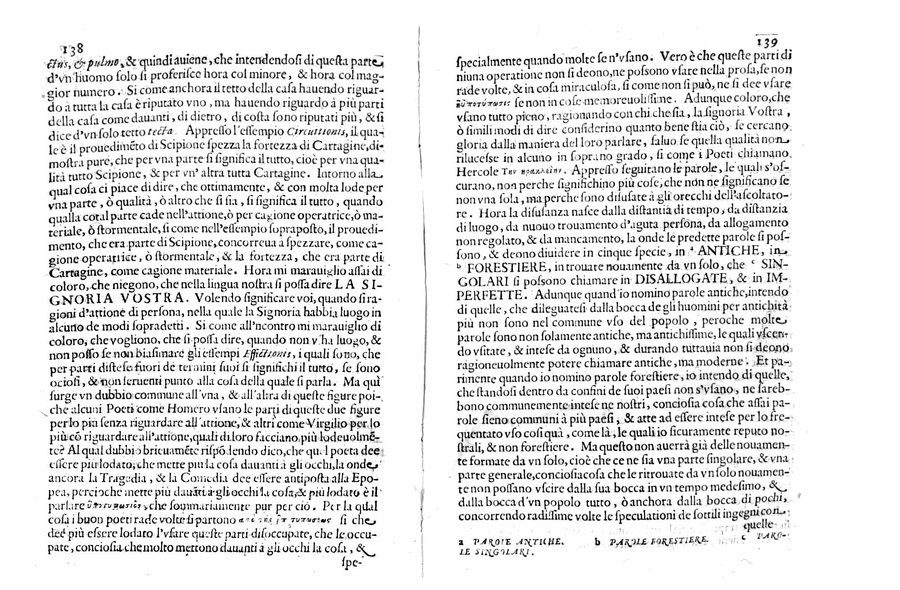 138
ctus, & pulmo, & quindi auiene, che intendendosi di questa parte
d'vn huomo solo si proferisce hora col minore, & hora col mag-
gior numero. Si come anchora il tetto della casa hauendo riguar-
do à tutta la casa è riputato vno, ma hauendo riguardo à più parti
della casa come dauanti, di dietro, di costa sono riputati più, & si
dice d'vn solo tetto tecta. Appresso l'essempio Circuitionis, il qua-
le è il prouedimẽto di Scipione spezza la fortezza di Cartagine, di-
mostra pure, che per vna parte si significa il tutto, cioè per vna qua-
lità tutto Scipione, & per vn' altra tutta Cartagine. Intorno alla
qual cosa ci piace di dire, che ottimamente, & con molta lode per
vna parte, ò qualità, ò altro che si sia, si significa il tutto, quando
qualla cotal parte cade nell'attione, ò per cagione operatrice, ò ma-
teriale, ò stormentale, si come nell'essempio soprаposto, il prouedi-
mento, che era parte di Scipione, concorreua à spezzare, come ca-
gione operatrice, ò stormentale, & la fortezza, che era parte di
Cartagine, come cagione materiale. Hora mi marauiglio assai di
coloro, che niegono, che nella lingua nostra si possa dire LA SI-
GNORIA VOSTRA. Volendo significare voi, quando si ra-
gioni d'attione di persona, nella quale la Signoria habbia luogo in
alcuno de modi sopradetti. Si come all'ncontro mi marauiglio di
coloro, che vogliono, che si possa dire, quando non v'ha luogo, &
non posso se non biasimare gli essempi Effictionis, i quali sono, che
per parti distese fuori de termini suoi si significhi il tutto, se sono
ociosi, & non seruenti punto alla cosa della quale si parla. Ma qui
surge vn dubbio commune all'vna, & all'altra di queste figure poi-
che alcuni Poeti come Homero vsano le parti di queste due figure
per lo più senza riguardare all'attione, & altri come Virgilio per lo
più cõ riguardare all'attione, quali di loro facciano più lodeuolmẽ-
te? Al qual dubbio breuamẽte rispõdendo dico, che quel poeta dee
essere più lodato, che mette più la cosa dauanti à gli occhi, la onde
ancora la Tragedia, & la Comedia dee essere antiposta alla Epo-
pea, percioche mette più dauãti à gli occhi la cosa, & più lodato è il
parlare che sommariamente pur per ciò. Per la qual
cosa i buon poeti rade volte si partono si che
dee più essere lodato l'vsare queste parti disoccupate, che le occu-
pate, conciosia che molto mettono dauanti à gli occhi la cosa, &
spe-
139
spetialmente quando molte se n'vsano. Vero è che queste parti di
niuna operatione non si deono, ne possono vsare nella prosa, se non
rade volte, & in cosa miraculosa, si come non si può, ne si dee vsare
se non in cose memoreuolissime. Adunque coloro, che
vsano tutto pieno, ragionando con chi che sia, la signoria Vostra,
ò simili modi di dire considerino quanto bene stia ciò, se cercano
gloria dalla maniera del loro parlare, saluo se quella qualità non
rilucesse in alcuno in soprano grado, si come i Poeti chiamano
Hercole Appresso seguitano le parole, le quali s'of-
curano, non perche significhino più cose, che non ne significano se
non vna sola, ma perche sono disusate à gli orecchi dell'ascoltato-
re. Hora la disusanza nasce dalla distantia di tempo, da distanzia
di luogo, da nuouo trouamento d'aguta persona, da allogamento
non regolato, & da mancamento, la onde le predette parole si pos-
sono, & deono diuidere in cinque specie, in a ANTICHE, in
b FORESTIERE, in trouate nouamente da vn solo, che c SIN-
GOLARI si possono chiamare in DISALLOGATE, & in IM-
PERFETTE. Adunque quand'io nomino parole antiche, intendo
di quelle, che dileguatesi dalla bocca de gli huomini per antichità
più non sono nel commune vso del popolo, peroche molte
parole sono non solamente antiche, ma antichissime, le quali essen-
do vsitate, & intese da ognuno, & durando tuttauia non si deono
ragioneuolmente potere chiamare antiche, ma moderne. Et pa-
rimente quando io nomino parole forestiere, io intendo di quelle,
che standosi dentro da confini de suoi paesi non s'vsano, ne sareb-
bono communemente intese ne nostri, conciosia cosa che assai pa-
role sieno communi à più paesi, & atte ad essere intese per lo fre-
quentato vso così quà, come là, le quali io sicuramente reputo no-
strali, & non forestiere. Ma questo non auerrà già delle nouamen-
te formate da vn solo, cioè che ce ne sia vna parte singolare, & vna
parte generale, conciosia cosa che le ritrouate da vn solo nouamen-
te non possano vscire dalla sua bocca in vn tempo medesimo, &
dalla bocca d'vn popolo tutto, ò anchora dalla bocca di pochi,
concorrendo radissime volte le speculationi de sottili ingegni con-
quelle
a PAROLE ANTICHE. b PAROLE FORESTIERE. c PARO-
LE SINGOLARI.